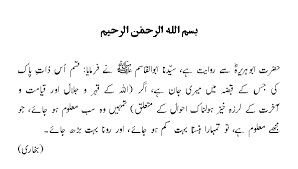 بسم الله الرحمٰن الرحیم
حضرت ابوہریرہؓ سے روایت ہے، سیّدنا ابوالقاسم ﷺ نے فرمایا: قسم اُس ذاتِ پاک
کی جس کے قبضہ میں میری جان ہے، اگر (اللہ کے قہر و جلال اور قیامت و
آخرت کے لرزہ خیز ہولناک احوال کے متعلق) تمہیں وہ سب معلوم ہو جائے، جو
مجھے معلوم ہے، تو تمہارا ہنسنا بہت کم ہو جائے، اور رونا بہت بڑھ جائے۔
(بخاری)